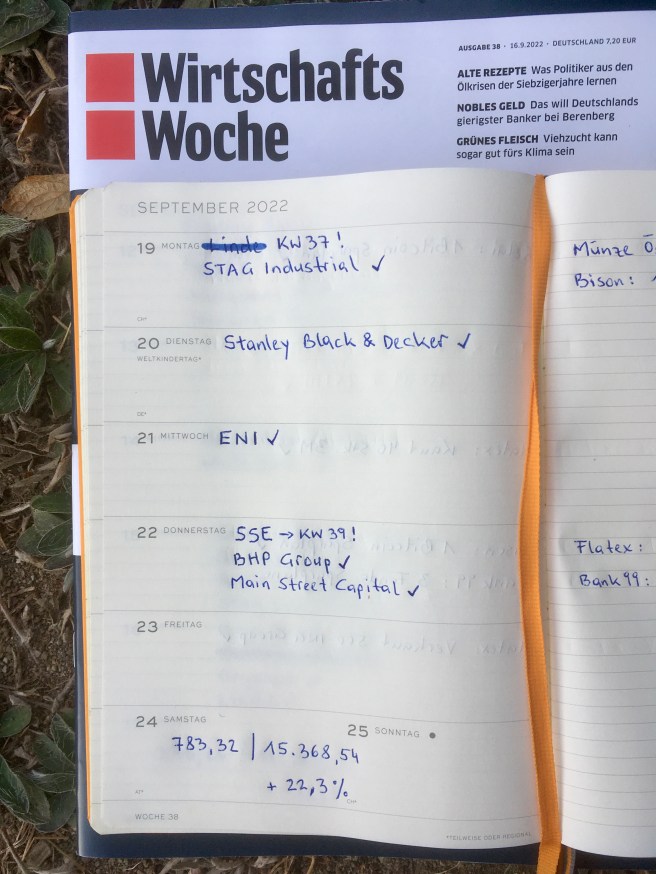 Wirtschafts
Woche
AUSGABE 38 · 16.9.2022 · DEUTSCHLAND 7,20 EUR
ALTE REZEPTE Was Politiker aus den
Ölkrisen der Siebzigerjahre lernen
NOBLES GELD Das will Deutschlands
gierigster Banker bei Berenberg
GRÜNES FLEISCH Viehzucht kann
sogar gut fürs Klima sein
SEPTEMBER 2022
19 MONTAG Linde KW37!
STAG Industrial ✓
CH*
20 DIENSTAG Stanley Black & Decker ✓
WELTKINDERTAG*
DE*
21 MITTWOCH ENI ✓
22 DONNERSTAG SSE → KW39!
BHP Group ✓
Main Street Capital ✓
23 FREITAG
24 SAMSTAG
783,32 | 15.368,54
+ 22,3%
AT*
25 SONNTAG
CH*
WOCHE 38
*TEILWEISE ODER REGIONAL
Münze Ö
Bison:
Flatex:
Bank99: